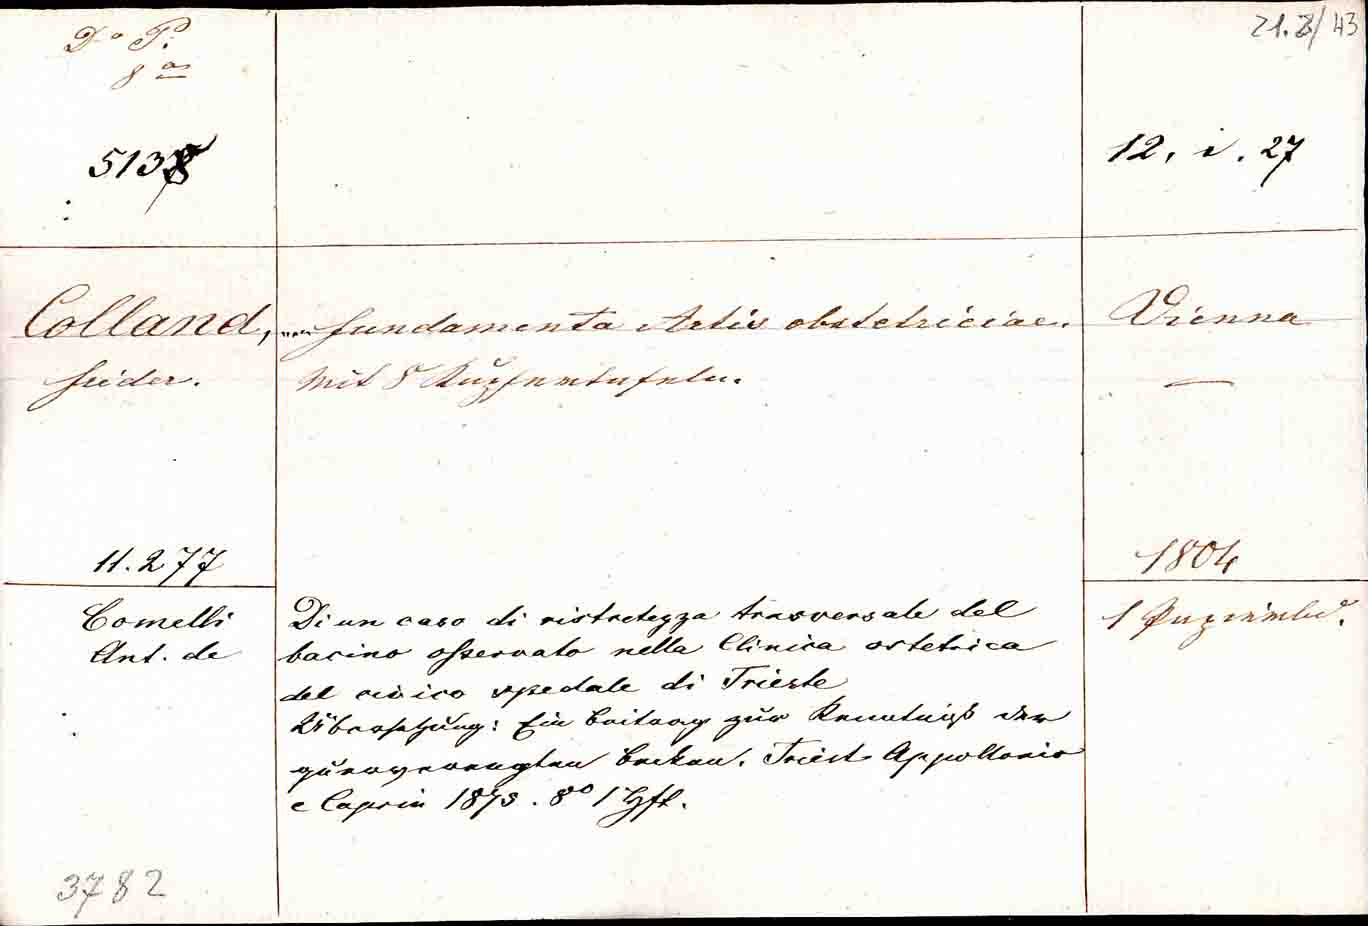 D o P.
8 as
21.8/43
5138
12. i. 27
Colland, fundamenta Artis obstetriciae. Vienna
frider. Mit 8 Kupfertafeln. —
11.277
1804
Comelli Di un caso di ristretezza trasversale del 1
Ant. de bacino osservato nella Clinica ostetrica
del civico spedale di Trieste
Übersetzung: Ein Beitrag zur Kenntniß der
querverengten Becken. Triest Appollonio
e Caprin 1873. 8o 1 Hft.
3782